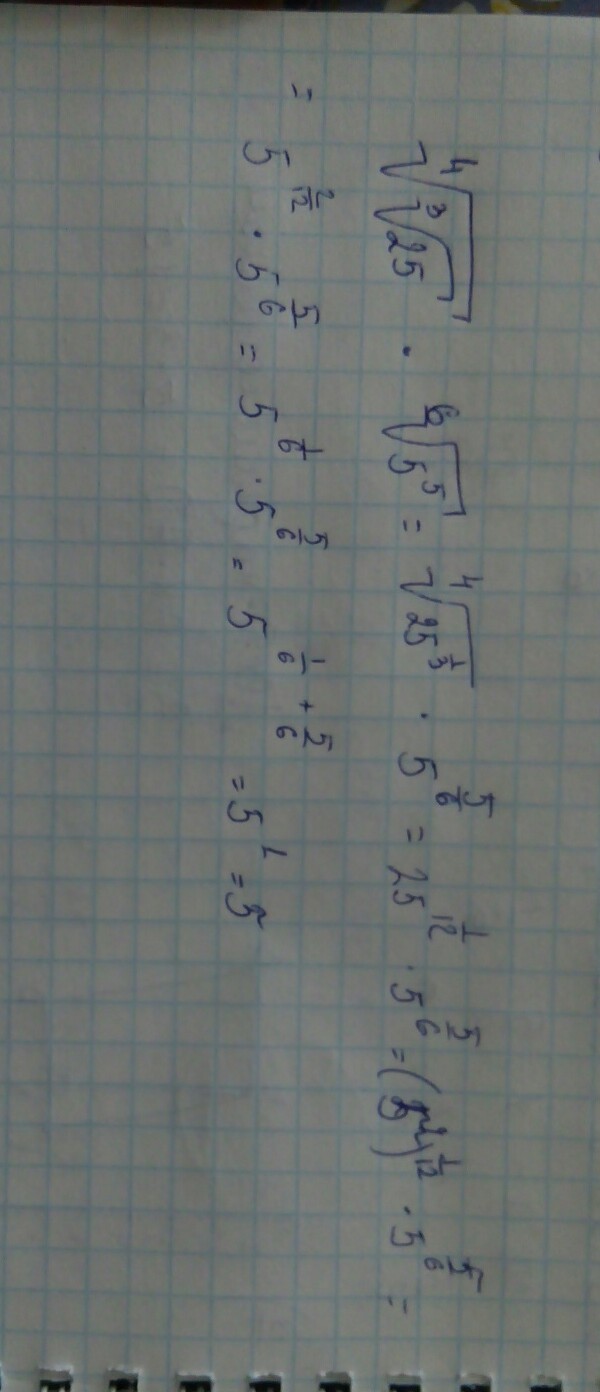 ⁴√(³√25) · ⁶√(5⁵) = ⁴√(25^(1/3)) · 5^(5/6) = 25^(1/12) · 5^(5/6) = (5²)^(1/12) · 5^(5/6) =
= 5^(2/12) · 5^(5/6) = 5^(1/6) · 5^(5/6) = 5^(1/6 + 5/6) = 5¹ = 5